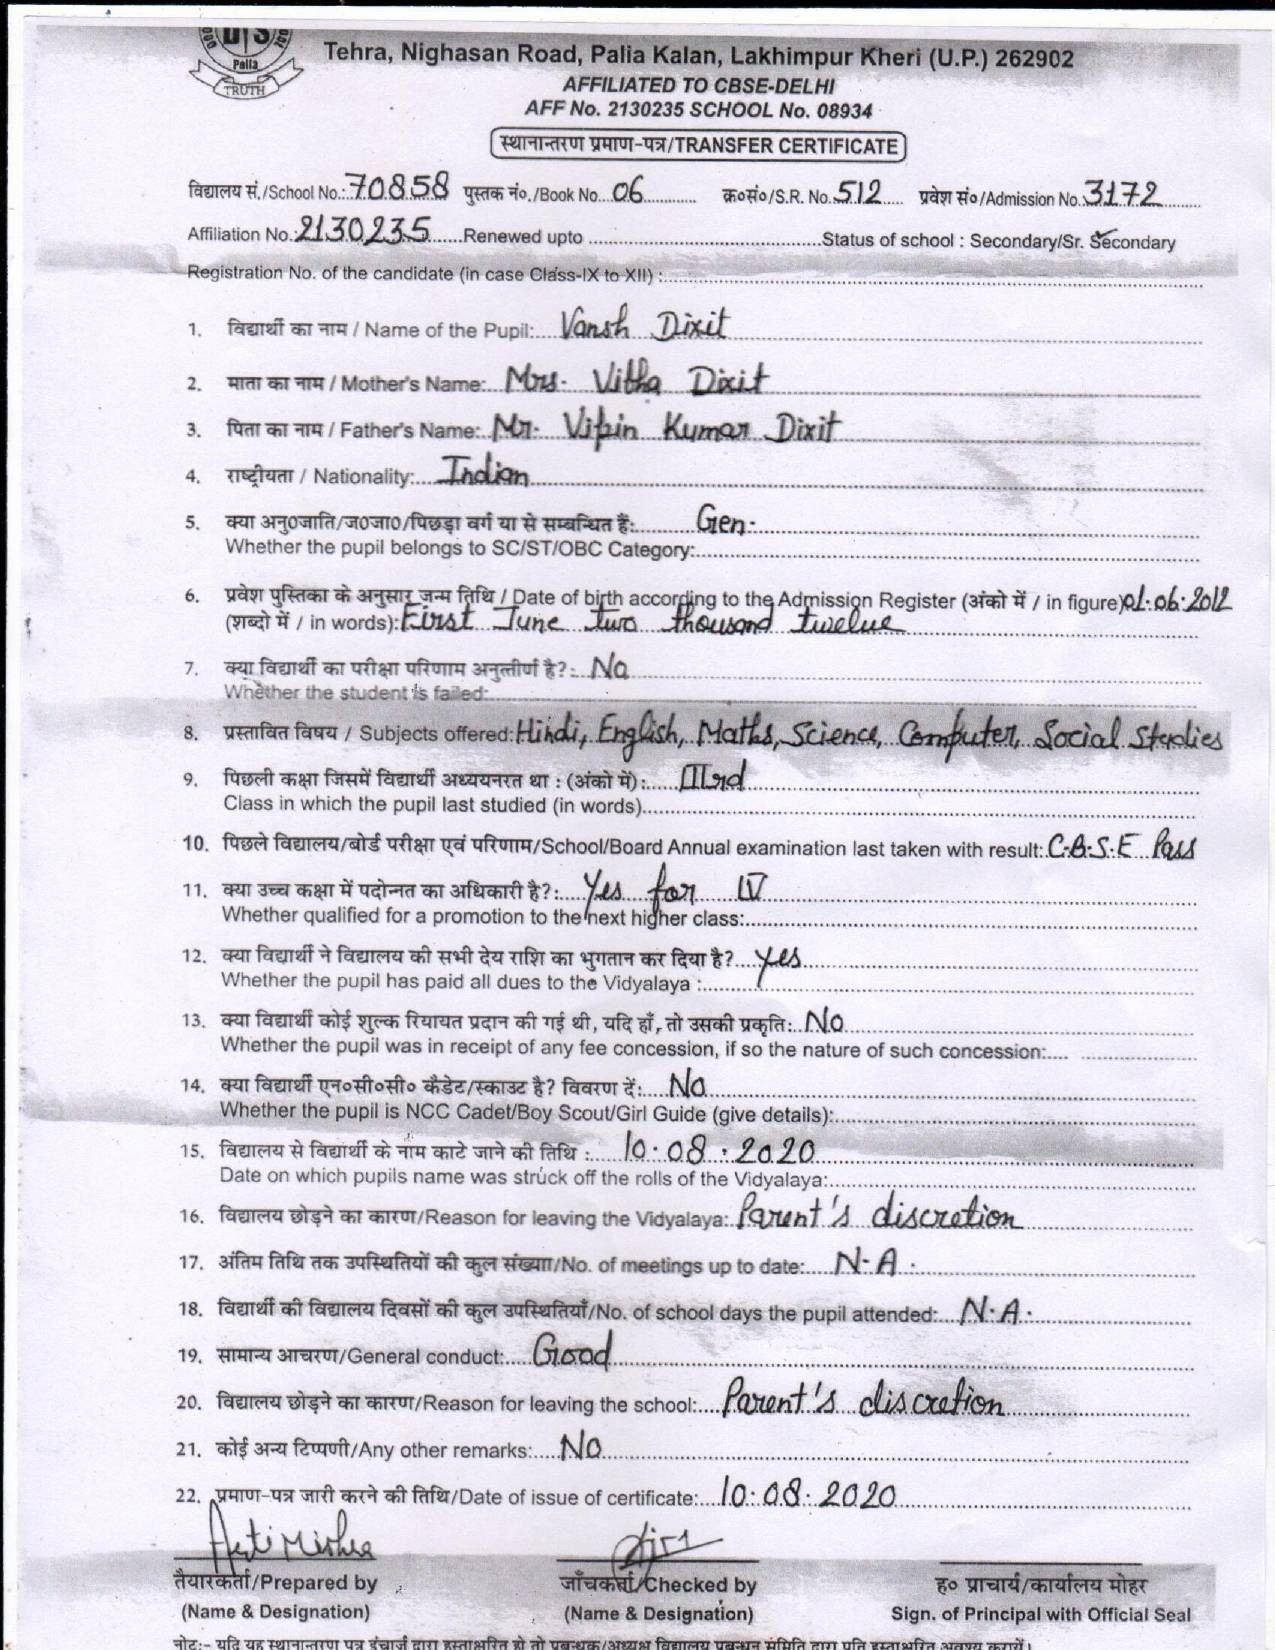 DIS
Palia
TRUTH
Tehra, Nighasan Road, Palia Kalan, Lakhimpur Kheri (U.P.) 262902
AFFILIATED TO CBSE-DELHI
AFF No. 2130235 SCHOOL No. 08934
स्थानान्तरण प्रमाण-पत्र/TRANSFER CERTIFICATE
विद्यालय सं./School No.: 70858 पुस्तक नं०./Book No. 06 क्र०सं०/S.R. No. 512 प्रवेश सं०/Admission No. 3172
Affiliation No.: 2130235 Renewed upto Status of school : Secondary/Sr. Secondary
Registration No. of the candidate (in case Class-IX to XII) :
1. विद्यार्थी का नाम / Name of the Pupil: Vansh Dixit
2. माता का नाम / Mother's Name: Mrs. Vibha Dixit
3. पिता का नाम / Father's Name: Mr. Vipin Kumar Dixit
4. राष्ट्रीयता / Nationality: Indian
5. क्या अनु०जाति/ज०जा०/पिछड़ा वर्ग या से सम्बन्धित हैं: Gen.
Whether the pupil belongs to SC/ST/OBC Category:
6. प्रवेश पुस्तिका के अनुसार जन्म तिथि / Date of birth according to the Admission Register (अंको में / in figure) 01.06.2012
(शब्दो में / in words): First June two thousand twelve
7. क्या विद्यार्थी का परीक्षा परिणाम अनुत्तीर्ण है?: No
Whether the student is failed:
8. प्रस्तावित विषय / Subjects offered: Hindi, English, Maths, Science, Computer, Social Studies
9. पिछली कक्षा जिसमें विद्यार्थी अध्ययनरत था : (अंको में) : IIIrd
Class in which the pupil last studied (in words)
10. पिछले विद्यालय/बोर्ड परीक्षा एवं परिणाम/School/Board Annual examination last taken with result: C.B.S.E Pass
11. क्या उच्च कक्षा में पदोन्नत का अधिकारी है?: Yes for IV
Whether qualified for a promotion to the next higher class:
12. क्या विद्यार्थी ने विद्यालय की सभी देय राशि का भुगतान कर दिया है? Yes
Whether the pupil has paid all dues to the Vidyalaya :
13. क्या विद्यार्थी कोई शुल्क रियायत प्रदान की गई थी, यदि हाँ, तो उसकी प्रकृति: No
Whether the pupil was in receipt of any fee concession, if so the nature of such concession:
14. क्या विद्यार्थी एन०सी०सी० कैडेट/स्काउट है? विवरण दें: No
Whether the pupil is NCC Cadet/Boy Scout/Girl Guide (give details):
15. विद्यालय से विद्यार्थी के नाम काटे जाने की तिथि : 10.08.2020
Date on which pupils name was struck off the rolls of the Vidyalaya:
16. विद्यालय छोड़ने का कारण/Reason for leaving the Vidyalaya: Parent's discretion
17. अंतिम तिथि तक उपस्थितियों की कुल संख्या/No. of meetings up to date: N.A.
18. विद्यार्थी की विद्यालय दिवसों की कुल उपस्थितियाँ/No. of school days the pupil attended: N.A.
19. सामान्य आचरण/General conduct: Good
20. विद्यालय छोड़ने का कारण/Reason for leaving the school: Parent's discretion
21. कोई अन्य टिप्पणी/Any other remarks: No
22. प्रमाण-पत्र जारी करने की तिथि/Date of issue of certificate: 10.08.2020
Arti Mishra
तैयारकर्ता/Prepared by जाँचकर्ता/Checked by ह० प्राचार्य/कार्यालय मोहर
(Name & Designation) (Name & Designation) Sign. of Principal with Official Seal
नोट:- यदि यह स्थानान्तरण पत्र इंचार्ज द्वारा हस्ताक्षरित हो तो प्रबन्धक/अध्यक्ष विद्यालय प्रबन्धन समिति द्वारा प्रति हस्ताक्षरित अवश्य करायें।